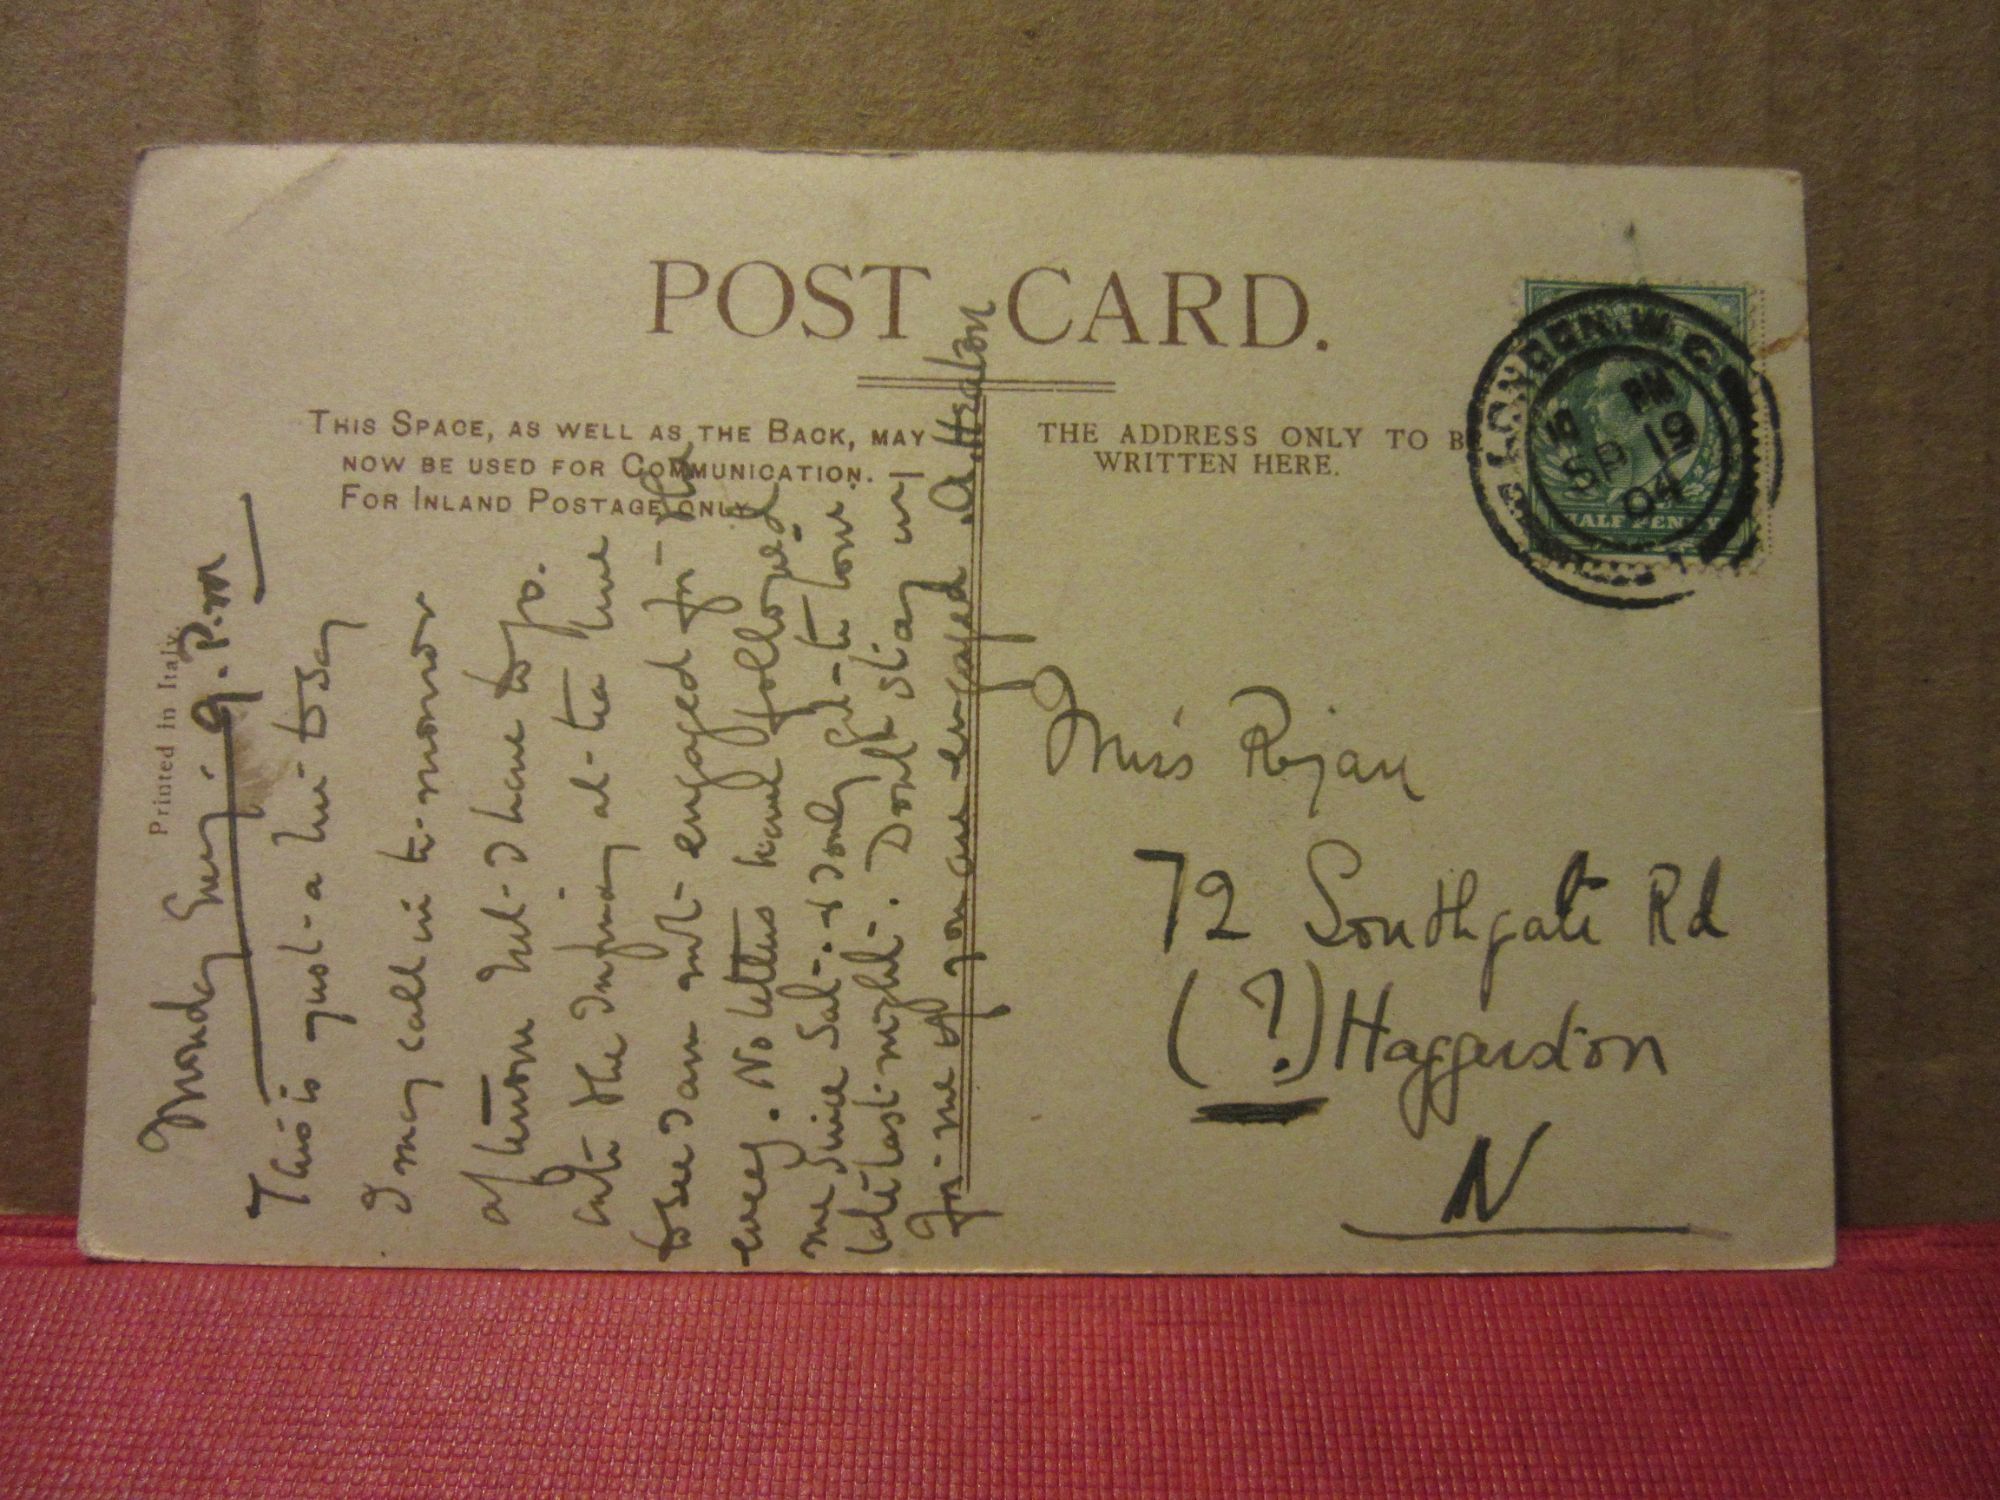 POST CARD.
THIS SPACE, AS WELL AS THE BACK, MAY
NOW BE USED FOR COMMUNICATION. —
FOR INLAND POSTAGE ONLY.
THE ADDRESS ONLY TO B
WRITTEN HERE.
Printed in Italy.
LONDON. W.C
10 PM
SP 19
04
HALF PENNY
Monday Eveg. 9. P.m
This is just a line to say
I may call in to-morrow
afternoon but I have to go
into the Infirmary at tea time
to see I am not engaged for the
eveg. No letters have followed
me since Sat. & I only got to town
late last night. Don't stay in
for me if you are engaged. A. Heaton
Miss Ryan
72 Southgate Rd
(?) Haggerston
N